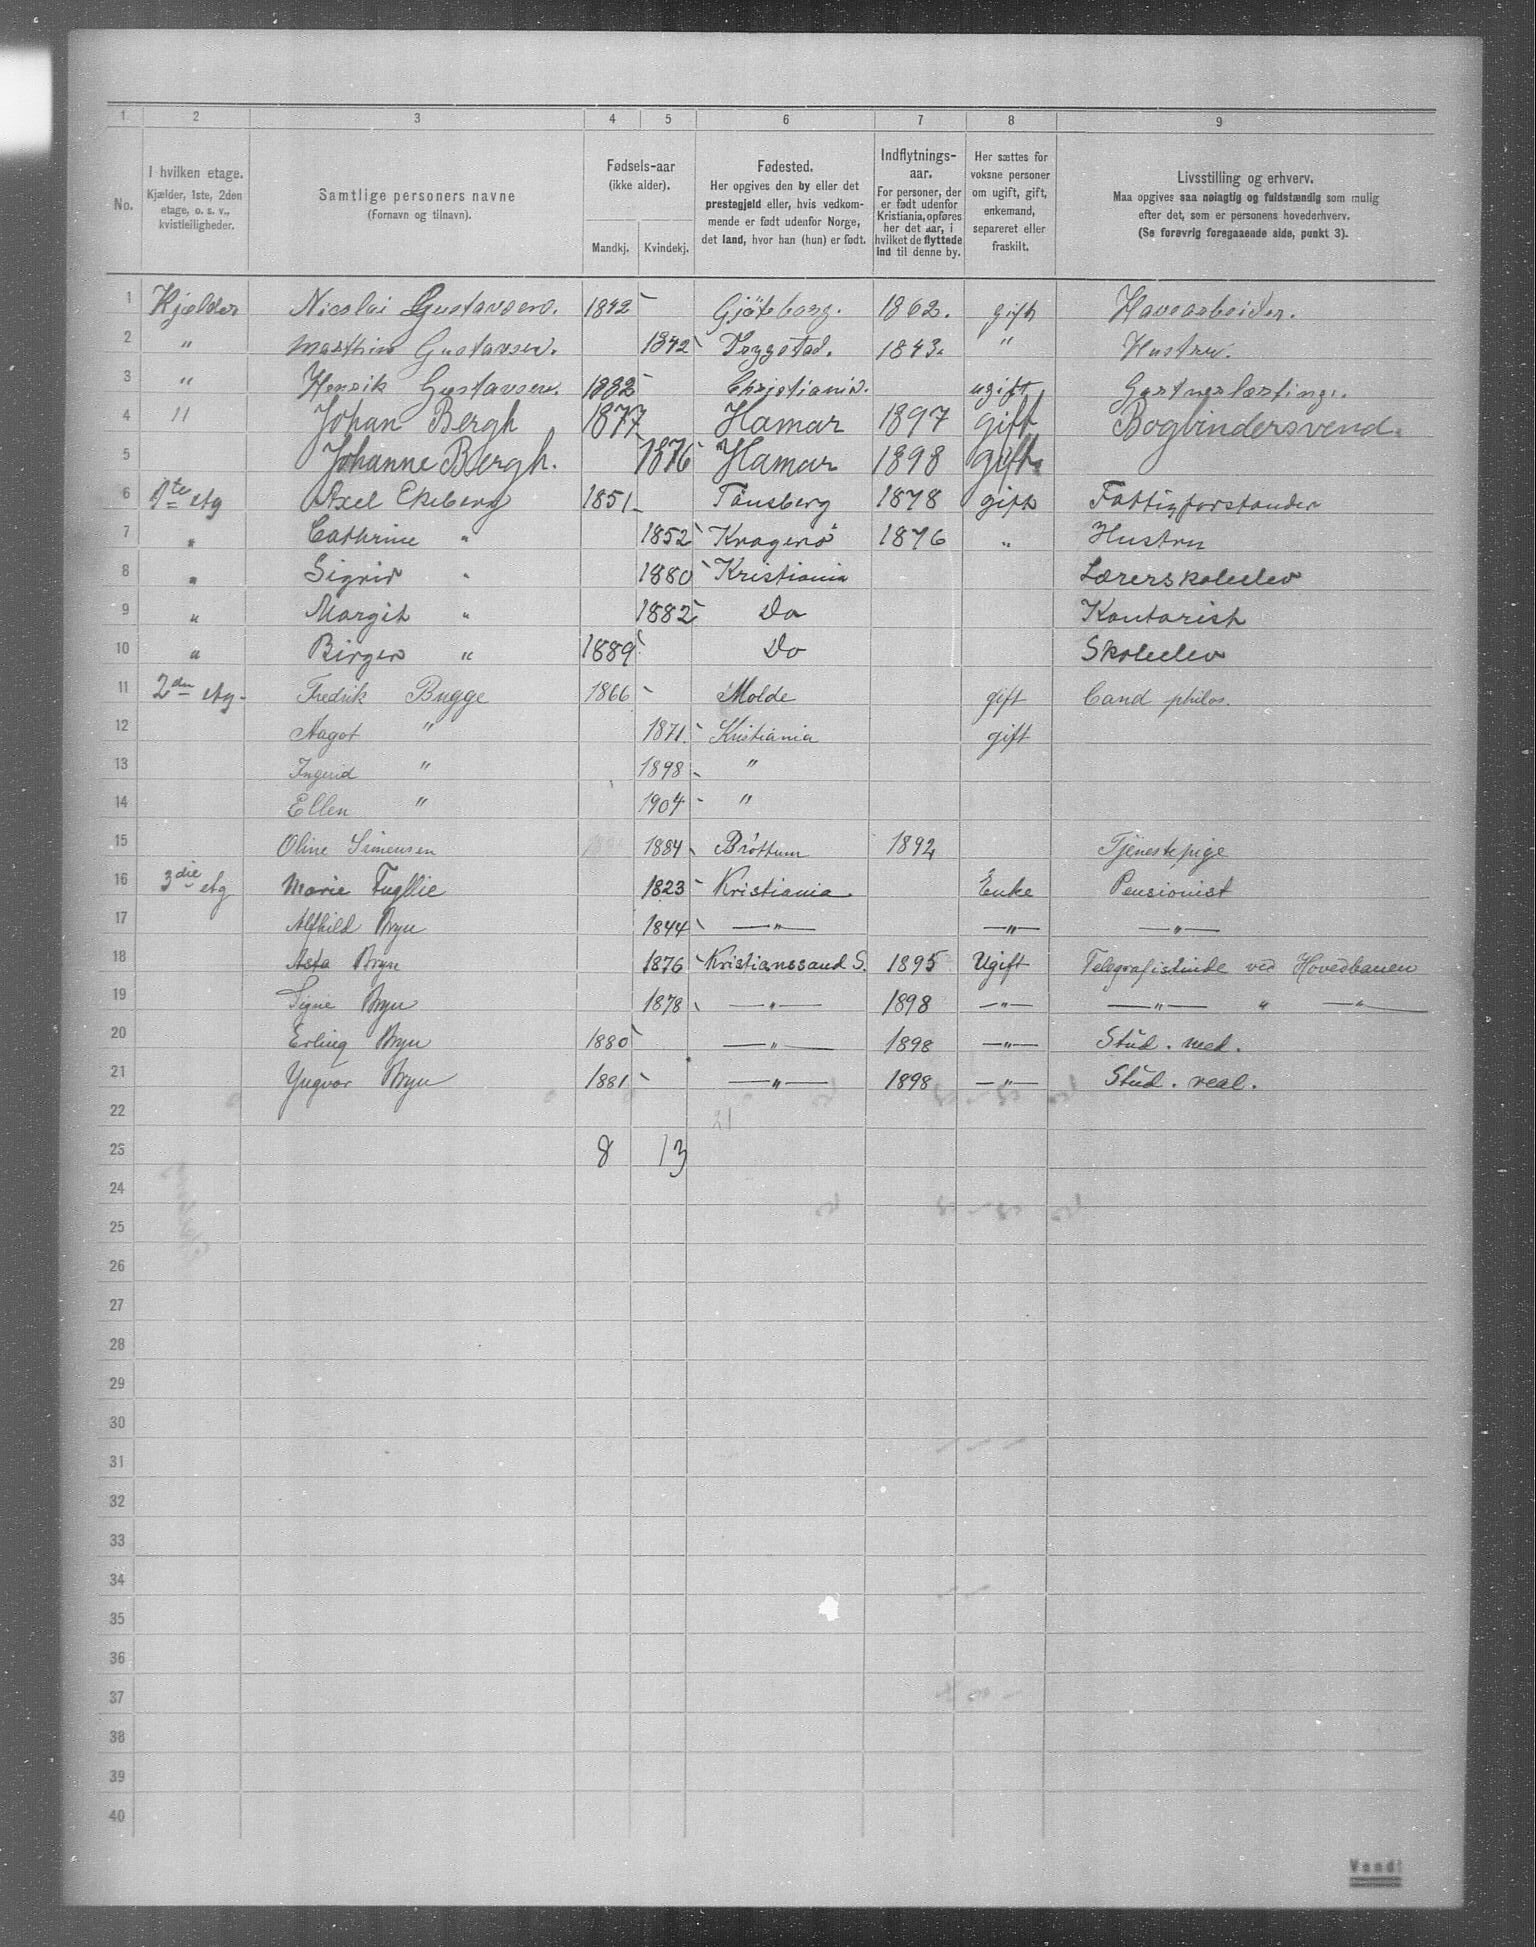 1 2 3 4 5 6 7 8 9
No.
I hvilken etage. Kjælder, 1ste, 2den etage, o. s. v., kvistleiligheder.
Samtlige personers navne (Fornavn og tilnavn).
Fødsels-aar (ikke alder). Mandkj. Kvindekj.
Fødested. Her opgives den by eller det prestegjeld eller, hvis vedkommende er født udenfor Norge, det land, hvor han (hun) er født.
Indflytnings-aar. For personer, der er født udenfor Kristiania, opføres her det aar, i hvilket de flyttede ind til denne by.
Her sættes for voksne personer om ugift, gift, enkemand, separeret eller fraskilt.
Livsstilling og erhverv. Maa opgives saa nøiagtig og fuldstændig som mulig efter det, som er personens hovederhverv. (Se forøvrig foregaaende side, punkt 3).
1 Kjælder Nicolai Gustavsen. 1842 Gjøteborg. 1862. gift Havearbeider.
2 " Marthin Gustavsen. 1842 Trygstad. 1843. " Hustru.
3 " Henrik Gustavsen. 1882 Christiania. ugift Gartnerlærling.
4 " Johan Bergh 1877 Hamar 1897 gift Bogbindersvend.
5 Johanne Bergh. 1876 Hamar 1898 gift.
6 1te etg Axel Ekeberg 1851 Tønsberg 1878 gift Fattigforstander
7 " Cathrine " 1852 Kragerø 1876 " Hustru
8 " Sigrid " 1880 Kristiania Lærerskoleelev
9 " Margit " 1882 Do Kontorist
10 " Birger " 1889 Do Skoleelev
11 2den etg. Fredrik Bugge 1866 Molde gift Cand philos.
12 Aagot " 1871 Kristiania gift
13 Ingerid " 1898 "
14 Ellen " 1904 "
15 Oline Simensen 1884 Brøttum 1892 Tjenestepige
16 3die etg Marie Fuglie 1823 Kristiania Enke Pensionist
17 Alfhild Bryn 1844 —"— —"— —"—
18 Asta Bryn 1876 Kristianssand S. 1895 Ugift Telegrafistinde ved Hovedbanen
19 Signe Bryn 1878 —"— 1898 —"— —"— " —"—
20 Erling Bryn 1880 —"— 1898 —"— Stud. med.
21 Yngvar Bryn 1881 —"— 1898 —"— Stud. real.
22
23 8 13
24
25
26
27
28
29
30
31
32
33
34
35
36
37
38
39
40
Vend!